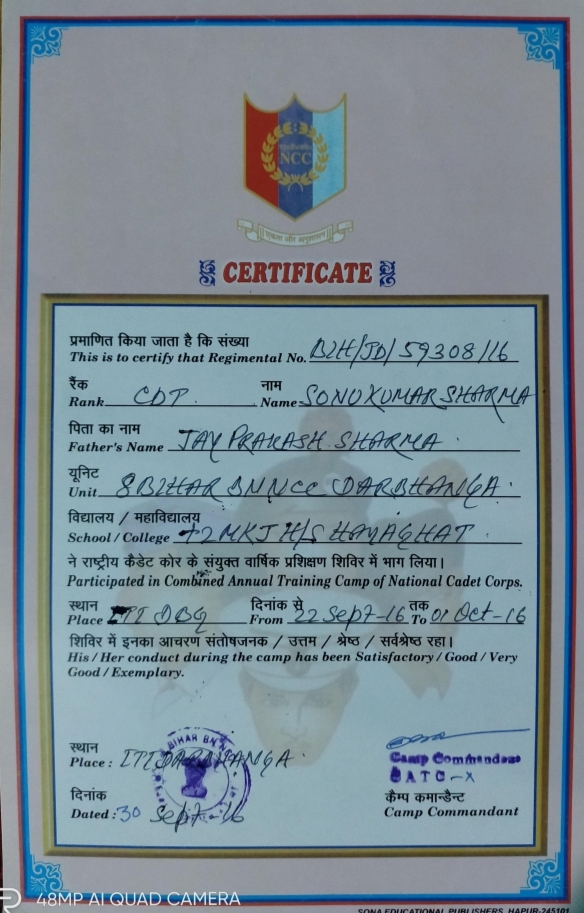 NCC
एकता और अनुशासन
CERTIFICATE
प्रमाणित किया जाता है कि संख्या
This is to certify that Regimental No. BIH/JD/59308/16
रैंक नाम
Rank CDT. Name SONU KUMAR SHARMA
पिता का नाम
Father's Name JAY PRAKASH SHARMA.
यूनिट
Unit 8 BIHAR BN NCC DARBHANGA.
विद्यालय / महाविद्यालय
School / College +2 MKJ H/S HAYAGHAT.
ने राष्ट्रीय कैडेट कोर के संयुक्त वार्षिक प्रशिक्षण शिविर में भाग लिया।
Participated in Combined Annual Training Camp of National Cadet Corps.
स्थान दिनांक से तक
Place ITI DBG From 22 Sept-16 To 01 Oct-16
शिविर में इनका आचरण संतोषजनक / उत्तम / श्रेष्ठ / सर्वश्रेष्ठ रहा।
His / Her conduct during the camp has been Satisfactory / Good / Very
Good / Exemplary.
स्थान
Place : ITI DARBHANGA.
BIHAR BN
Camp Commandant
CATC-X
दिनांक
Dated : 30 Sept-16
कैम्प कमान्डैन्ट
Camp Commandant
48MP AI QUAD CAMERA
SONA EDUCATIONAL PUBLISHERS, HAPUR-245101